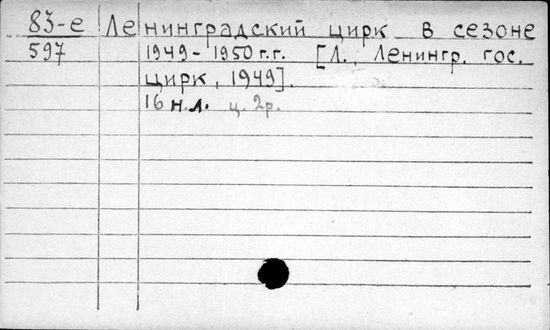 83-е Ленинградский цирк в сезоне
597 1949-1950 г.г. [Л., Ленингр. гос.
цирк, 1949].
16 н.л. ц. 2р.